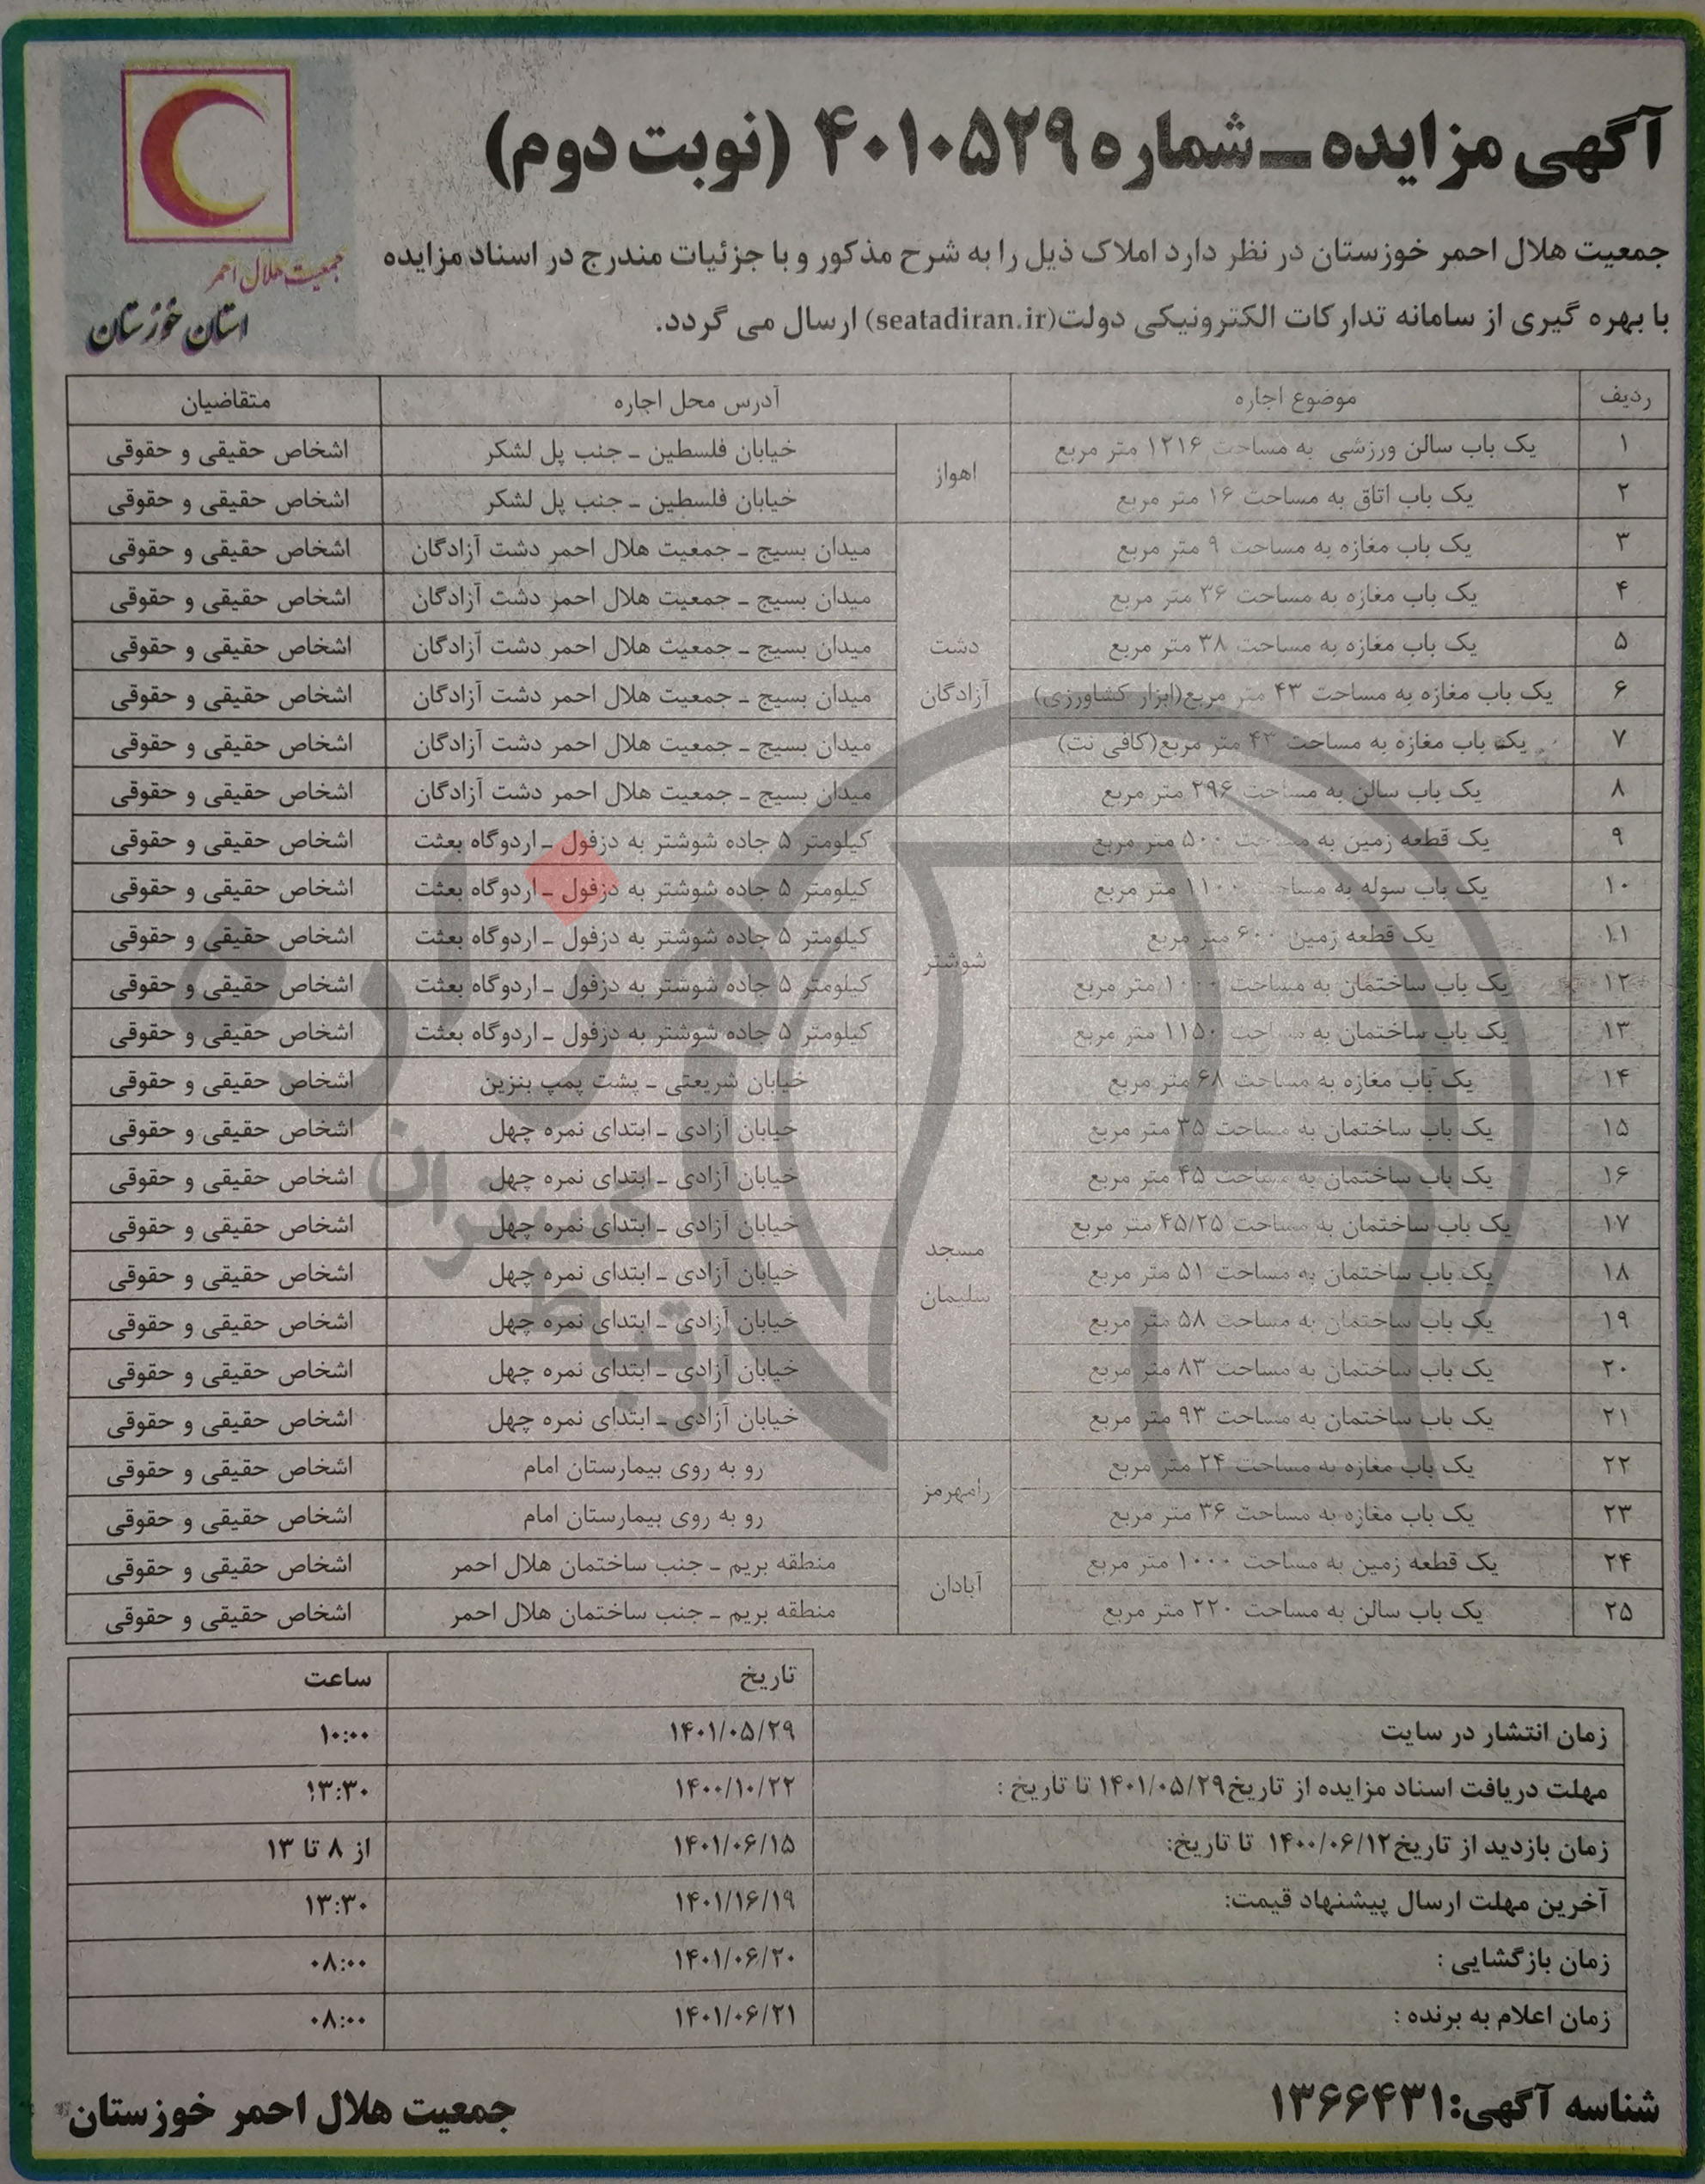 آگهی مزایده ـ شماره ۴۰۱۰۵۲۹ (نوبت دوم)
جمعیت هلال احمر
استان خوزستان
جمعیت هلال احمر خوزستان در نظر دارد املاک ذیل را به شرح مذکور و با جزئیات مندرج در اسناد مزایده
با بهره گیری از سامانه تدارکات الکترونیکی دولت(seatadiran.ir) ارسال می گردد.
ردیف موضوع اجاره آدرس محل اجاره متقاضیان
۱ یک باب سالن ورزشی به مساحت ۱۲۱۶ متر مربع اهواز خیابان فلسطین ـ جنب پل لشکر اشخاص حقیقی و حقوقی
۲ یک باب اتاق به مساحت ۱۶ متر مربع خیابان فلسطین ـ جنب پل لشکر اشخاص حقیقی و حقوقی
۳ یک باب مغازه به مساحت ۹ متر مربع دشت آزادگان میدان بسیج ـ جمعیت هلال احمر دشت آزادگان اشخاص حقیقی و حقوقی
۴ یک باب مغازه به مساحت ۳۶ متر مربع میدان بسیج ـ جمعیت هلال احمر دشت آزادگان اشخاص حقیقی و حقوقی
۵ یک باب مغازه به مساحت ۳۸ متر مربع میدان بسیج ـ جمعیت هلال احمر دشت آزادگان اشخاص حقیقی و حقوقی
۶ یک باب مغازه به مساحت ۴۳ متر مربع(ابزار کشاورزی) میدان بسیج ـ جمعیت هلال احمر دشت آزادگان اشخاص حقیقی و حقوقی
۷ یک باب مغازه به مساحت ۴۳ متر مربع(کافی نت) میدان بسیج ـ جمعیت هلال احمر دشت آزادگان اشخاص حقیقی و حقوقی
۸ یک باب سالن به مساحت ۲۹۶ متر مربع میدان بسیج ـ جمعیت هلال احمر دشت آزادگان اشخاص حقیقی و حقوقی
۹ یک قطعه زمین به مساحت ۵۰۰ متر مربع شوشتر کیلومتر ۵ جاده شوشتر به دزفول ـ اردوگاه بعثت اشخاص حقیقی و حقوقی
۱۰ یک باب سوله به مساحت ۱۱۰۰ متر مربع کیلومتر ۵ جاده شوشتر به دزفول ـ اردوگاه بعثت اشخاص حقیقی و حقوقی
۱۱ یک قطعه زمین ۶۰۰ متر مربع کیلومتر ۵ جاده شوشتر به دزفول ـ اردوگاه بعثت اشخاص حقیقی و حقوقی
۱۲ یک باب ساختمان به مساحت ۱۰۰۰ متر مربع کیلومتر ۵ جاده شوشتر به دزفول ـ اردوگاه بعثت اشخاص حقیقی و حقوقی
۱۳ یک باب ساختمان به مساحت ۱۱۵۰ متر مربع کیلومتر ۵ جاده شوشتر به دزفول ـ اردوگاه بعثت اشخاص حقیقی و حقوقی
۱۴ یک باب مغازه به مساحت ۶۸ متر مربع خیابان شریعتی ـ پشت پمپ بنزین اشخاص حقیقی و حقوقی
۱۵ یک باب ساختمان به مساحت ۳۵ متر مربع مسجد سلیمان خیابان آزادی ـ ابتدای نمره چهل اشخاص حقیقی و حقوقی
۱۶ یک باب ساختمان به مساحت ۴۵ متر مربع خیابان آزادی ـ ابتدای نمره چهل اشخاص حقیقی و حقوقی
۱۷ یک باب ساختمان به مساحت ۴۵/۲۵ متر مربع خیابان آزادی ـ ابتدای نمره چهل اشخاص حقیقی و حقوقی
۱۸ یک باب ساختمان به مساحت ۵۱ متر مربع خیابان آزادی ـ ابتدای نمره چهل اشخاص حقیقی و حقوقی
۱۹ یک باب ساختمان به مساحت ۵۸ متر مربع خیابان آزادی ـ ابتدای نمره چهل اشخاص حقیقی و حقوقی
۲۰ یک باب ساختمان به مساحت ۸۳ متر مربع خیابان آزادی ـ ابتدای نمره چهل اشخاص حقیقی و حقوقی
۲۱ یک باب ساختمان به مساحت ۹۳ متر مربع خیابان آزادی ـ ابتدای نمره چهل اشخاص حقیقی و حقوقی
۲۲ یک باب مغازه به مساحت ۲۴ متر مربع رامهرمز رو به روی بیمارستان امام اشخاص حقیقی و حقوقی
۲۳ یک باب مغازه به مساحت ۳۶ متر مربع رو به روی بیمارستان امام اشخاص حقیقی و حقوقی
۲۴ یک قطعه زمین به مساحت ۱۰۰۰ متر مربع آبادان منطقه بریم ـ جنب ساختمان هلال احمر اشخاص حقیقی و حقوقی
۲۵ یک باب سالن به مساحت ۲۲۰ متر مربع منطقه بریم ـ جنب ساختمان هلال احمر اشخاص حقیقی و حقوقی
تاریخ ساعت
زمان انتشار در سایت ۱۴۰۱/۰۵/۲۹ ۱۰:۰۰
مهلت دریافت اسناد مزایده از تاریخ۱۴۰۱/۰۵/۲۹ تا تاریخ : ۱۴۰۰/۱۰/۲۲ ۱۳:۳۰
زمان بازدید از تاریخ۱۴۰۰/۰۶/۱۲ تا تاریخ: ۱۴۰۱/۰۶/۱۵ از ۸ تا ۱۳
آخرین مهلت ارسال پیشنهاد قیمت: ۱۴۰۱/۱۶/۱۹ ۱۳:۳۰
زمان بازگشایی : ۱۴۰۱/۰۶/۲۰ ۰۸:۰۰
زمان اعلام به برنده : ۱۴۰۱/۰۶/۲۱ ۰۸:۰۰
شناسه آگهی:۱۳۶۶۴۳۱
جمعیت هلال احمر خوزستان
هزاره
ارتباط گستران